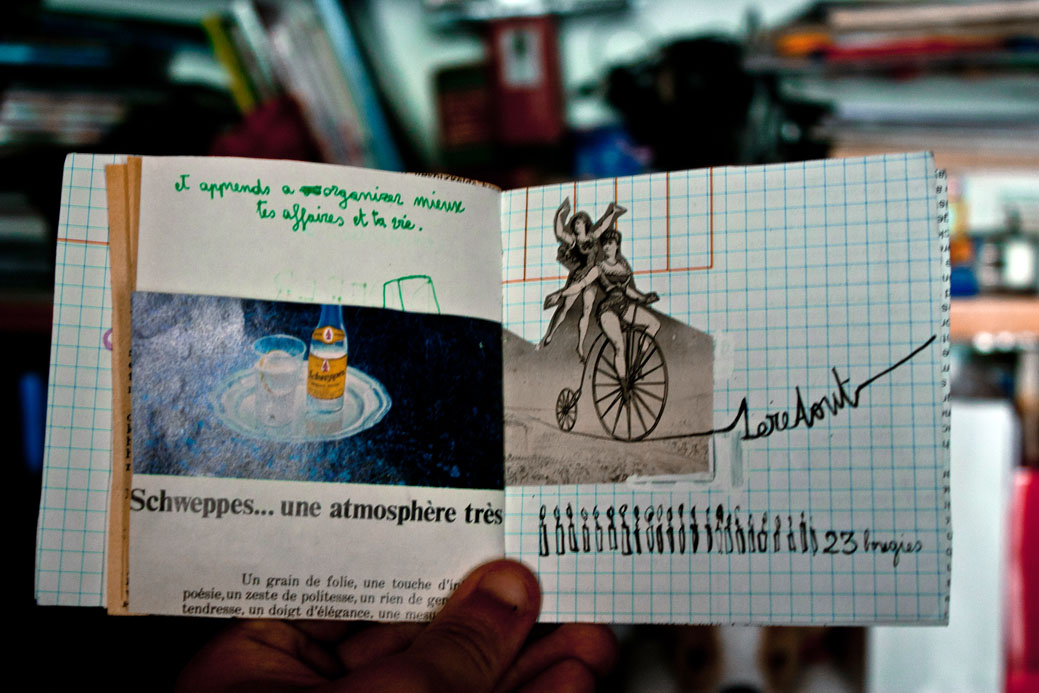 et apprends a organiser mieux
tes affaires et ta vie.
Schweppes
Schweppes... une atmosphère très
Un grain de folie, une touche
poésie, un zeste de politesse, un rien de
tendresse, un doigt d'élégance, une
1ere Aout
23 bougies